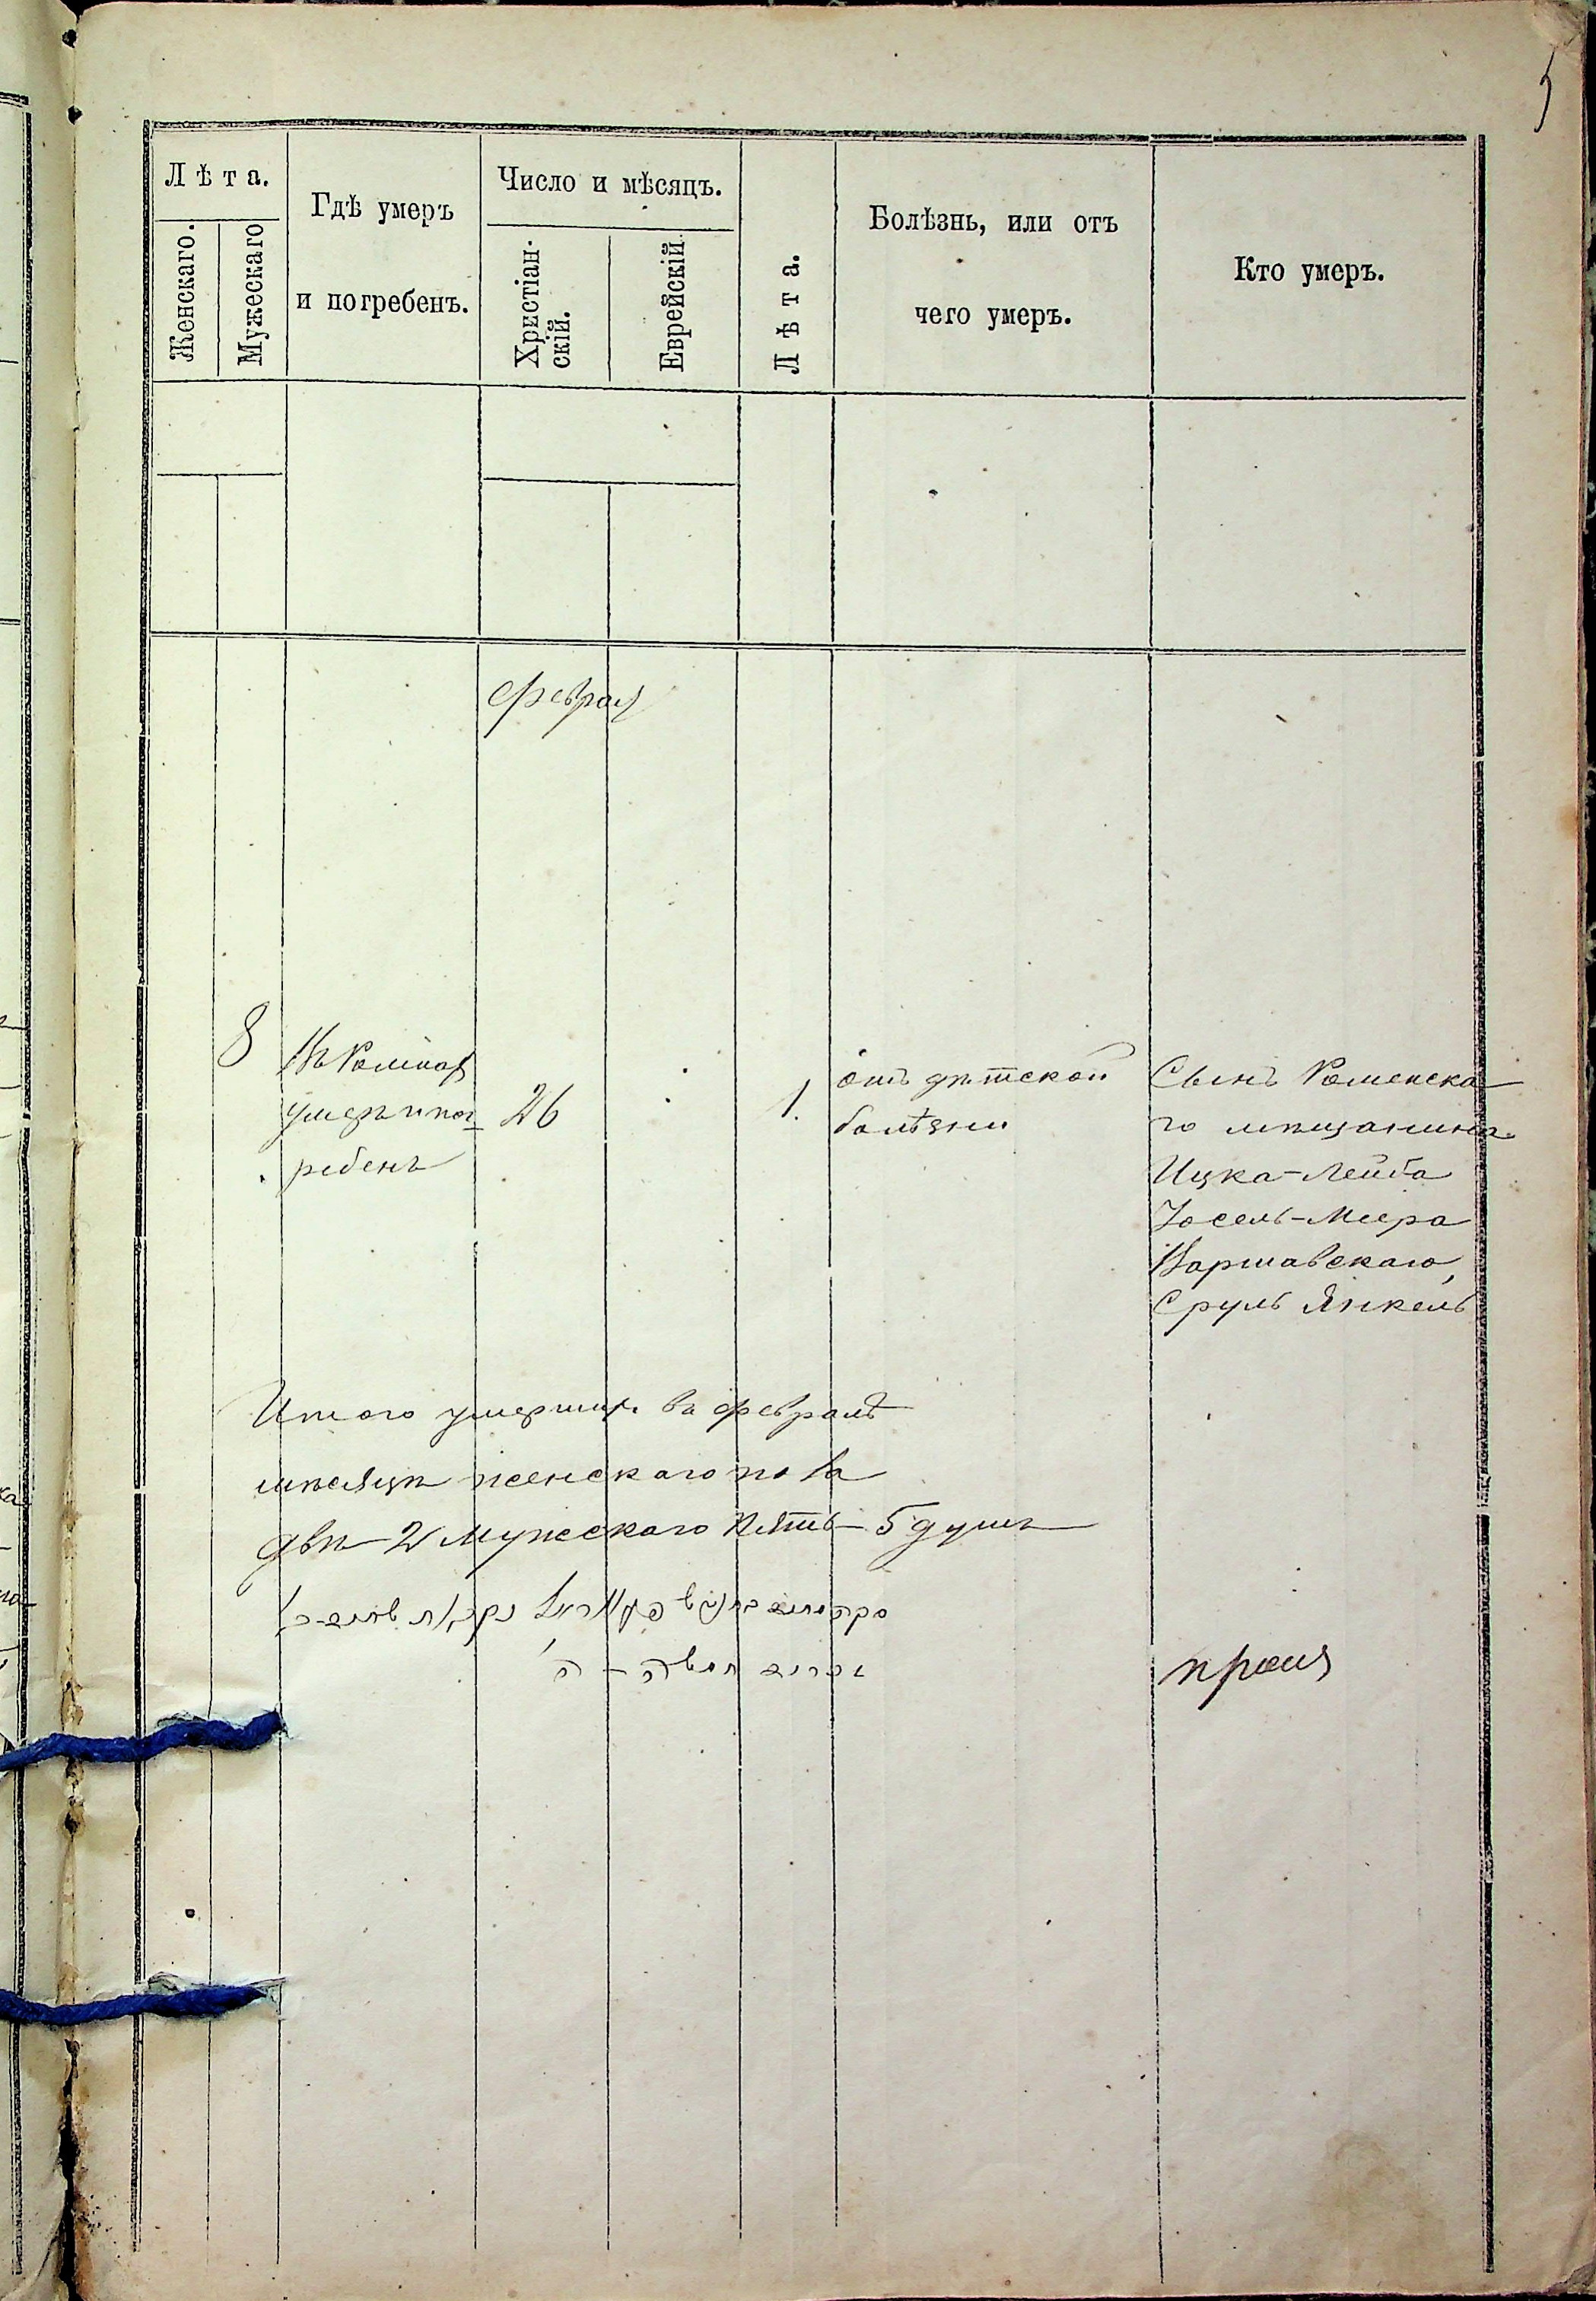 5
Лѣта.
Женскаго.
Мужескаго
Гдѣ умеръ
и погребенъ.
Число и мѣсяцъ.
Христіан-
скій.
Еврейскій
Лѣта.
Болѣзнь, или отъ
чего умеръ.
Кто умеръ.
Февраля
8
Въ Ромнах
умеръ и пог
ребенъ
26
1.
отъ дѣтской
болѣзни
Сынъ Роменска
го мѣщанина
Ицка-Лейба
Іосель-Меера
Варшавскаго,
Сруль Янкель
Итого умершихъ въ Февралѣ
мѣсяцѣ женскаго пола
двѣ 2 мужескаго пять 5 душъ